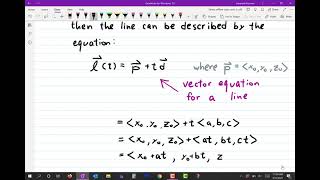 then the line can be described by the
equation:
l⃗(t) = p⃗ + t d⃗ where p⃗ = <x₀, y₀, z₀>
vector equation
for a line
= <x₀, y₀, z₀> + t <a, b, c>
= <x₀, y₀, z₀> + <at, bt, ct>
= <x₀ + at , y₀ + bt, z